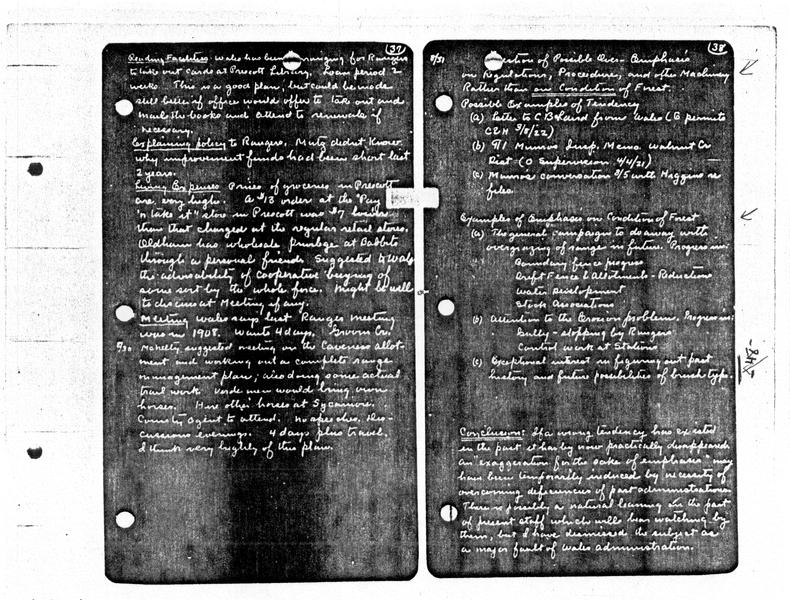 (37)
Reading Facilities. Wales has been arranging for Rangers
to take out cards at Prescott Library. Loan period 2
weeks. This is a good plan, but could be made
still better if office would offer to take out and
mail the books and attend to renewals if
necessary.
Explaining policy to Rangers. Mutz didn't know
why improvement funds had been short last
2 years.
Living Expenses Prices of groceries in Prescott
are very high. A $13 order at the "Pay
'n take it" store in Prescott was $7 lower
than that charged at the regular retail stores.
Oldham has wholesale privilege at Babbitts
through a personal friend. Suggested to Wales
the advisability of cooperative buying of
some sort by the whole force. Might be well
to discuss at Meeting if any.
Meeting Wales says last Ranger Meeting
was in 1908. Wants 4 days, Groom Cr.
8/30 McNelty suggested meeting on the Caveness allot-
ment and working out a complete range
management plan, also doing some actual
trail work. Verde men would bring own
horses. Hire other horses at Sycamore.
County agent to attend. No speeches. Dis-
cussions evenings. 4 days plus travel.
I think very highly of this plan.
(38)
8/31 Question of Possible Over-Emphasis
on Regulations, Procedure, and other Machinery
Rather than on Condition of Forest.
Possible Examples of Tendency
(a) Letter to C B Laird from Wales (G permits
C&H 5/8/22)
(b) Munros Insp. Memo Walnut Cr
Dist (O Supervision 4/4/21)
(c) Munros conversation 8/5 with Huggins re
files.
Examples of Emphasis on Condition of Forest
(a) The general campaign to do away with
overgrazing of range in future. Progress in:
Boundary fence progress
Drift Fence & Allotments - Reductions
Water Development
Stock Associations
(b) Attention to the Erosion problems. Progress in:
Gully-stopping by Rangers
Control work at Stations
(c) Exceptional interest in figuring out past
history and future possibilities of brush type.
-48-
Conclusion: If a wrong tendency has existed
in the past it has by now practically disappeared.
An exaggeration for the sake of emphasis may
have been temporarily induced by necessity of
overcoming deficiencies of past administrations.
There is possibly a natural leaning on the part
of present staff which will bear watching by
them, but I have dismissed the subject as
a major fault of Wales administration.